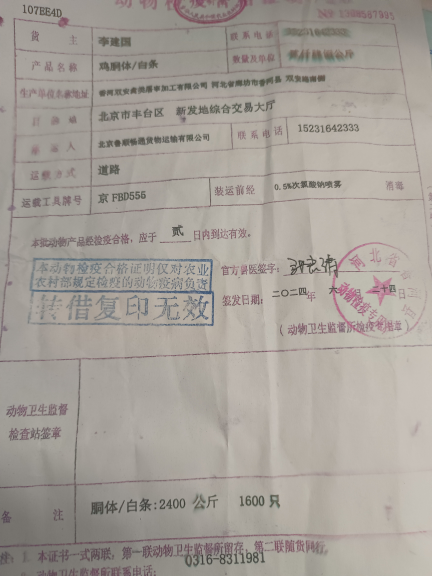 107EE4D
动物检疫合格证明
货 主 李建国 联系电话
产品名称 鸡胴体/白条 数量及单位
生产单位名称地址
目的地 北京市丰台区 新发地综合交易大厅
承运人 北京鲁顺畅通货物运输有限公司 联系电话 15231642333
运载方式 道路
运载工具牌号 京FBD555 装运前经 0.5%次氯酸钠喷雾 消毒
本批动物产品经检疫合格，应于 贰 日内到达有效。
本动物检疫合格证明仅对农业
农村部规定检疫的动物疫病负责
转借复印无效
官方兽医签字：
签发日期：二〇二四年 六 二十四日
（动物卫生监督所检疫专用章）
动物卫生监督
检查站签章
备 注 胴体/白条:2400 公斤 1600 只
注：1. 本证书一式两联，第一联动物卫生监督所留存，第二联随货同行。
动物卫生监督所联系电话： 0316-8311981